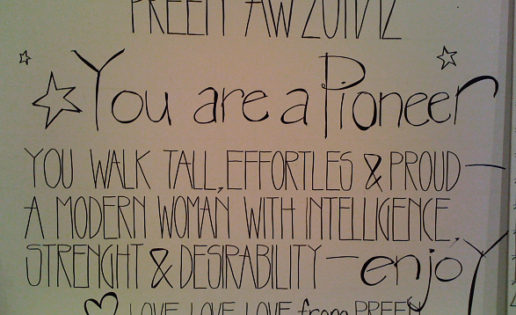 PREEN AW 2011/12
You are a Pioneer
YOU WALK TALL, EFFORTLES & PROUD —
A MODERN WOMAN WITH INTELLIGENCE,
STRENGHT & DESIRABILITY — enjoy
LOVE LOVE LOVE from PREEN